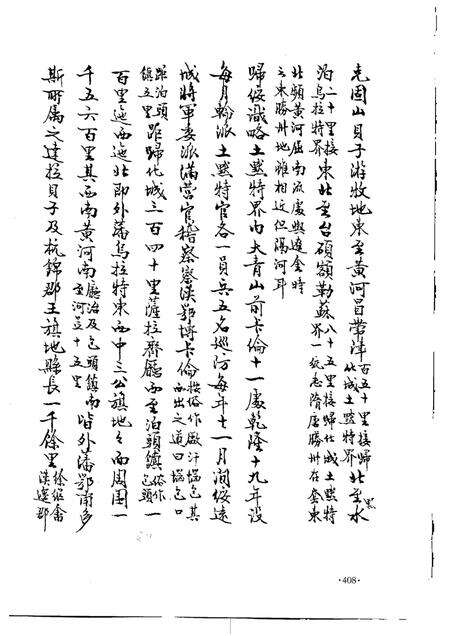 老固山貝子游牧地東至黃河冒帶津百五十里接歸化城土默特界北至黑水
泊二十里接烏拉特界東北至台碩額勒蘇八十五里接歸化城土默特界一統志隋唐勝州在套東
北瀕黃河屈南流處與遼金時之東勝州地雖相近但隔河耳
歸綏識略土默特界內大青山前卡倫十一處乾隆十九年設
每月輪派土默特官各一員兵五名巡防每年十一月間綏遠
城將軍委派滿營官稽察察漢鄂博卡倫按俗作廠汗堖包其西出之道曰堖包口
距泊頭鎮五里距歸化城三百四十里薩拉齊廳西至泊頭鎮俗作包頭一
百里迤西迤北即外藩烏拉特東西中三公旗地々面周圍一
千五六百里其西南黃河南廳治及包頭鎮南至河並十五里皆外藩鄂爾多
斯所屬之達拉貝子及杭錦郡王旗地縣長一千餘里徐繼畬漢邊郡
·408·